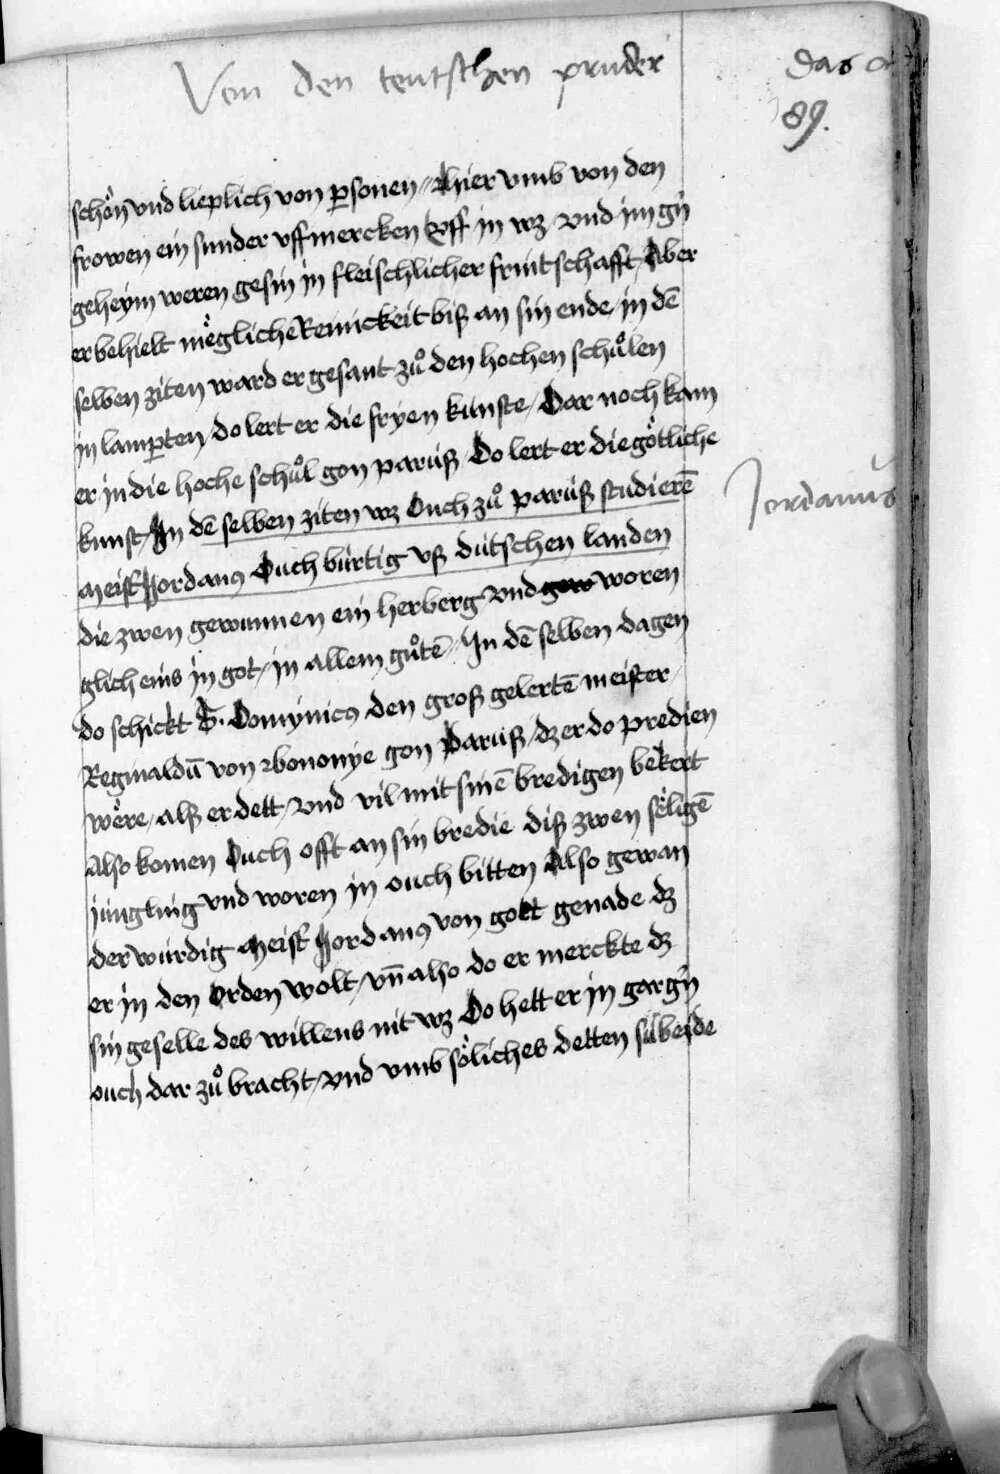 Von den teutschen pruder
Das
89.
schön vnd lieplich von personen // hier vmb von den
frowen ein sunder vffmercken vff in wz / vnd im gn̄
geheym weren gesin in fleischlicher fruntschafft / Aber
er behielt mëgliche Reinickeit biß an sin ende / in dē
selben ziten ward er gesant zů den hochen schůlen
in lamparten / do lert er die fryen kunste / Dar noch kam
er in die hoche schůl gon paruß / Do lert er die götliche
kunst / In dē selben ziten wz Ouch zů paruß studierē
Jordanus
meist Jordanꝰ Ouch bürtig vß dutschen landen
die zwen gewunnen ein herberg vnd woren
glich eins in got / in allem gůtē / In dē selben dagen
do schickt S. Domynicꝰ den groß gelertē meister /
Reginaldū von bononye gon Paruß / dz er do predien
wëre / alß er dett / vnd vil mit sinē bredigen bekert
Also komen Ouch offt an sin bredie diß zwen sëligē
jungling vnd woren in ouch bitten Also gewan
der würdig meist Jordanꝰ von gott genade dz
er in den Orden wolt / vn̄ also do er merckte dz
sin geselle des willens nit wz Do hett er in gar gn̄
ouch dar zů bracht / vnd vmb söliches detten sü beide